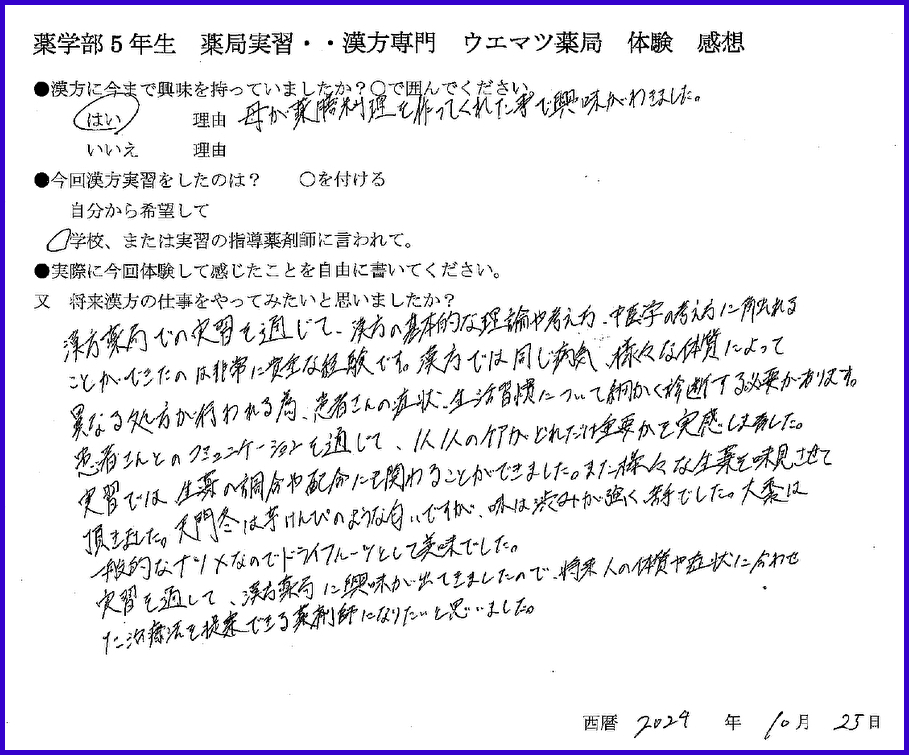 薬学部5年生 薬局実習・・漢方専門 ウエマツ薬局 体験 感想
●漢方に今まで興味を持っていましたか？○で囲んでください。
はい 理由 母が薬膳料理を作ってくれた事で興味がわきました。
いいえ 理由
●今回漢方実習をしたのは？ ○を付ける
自分から希望して
○学校、または実習の指導薬剤師に言われて。
●実際に今回体験して感じたことを自由に書いてください。
又 将来漢方の仕事をやってみたいと思いましたか？
漢方薬局での実習を通じて、漢方の基本的な理論や考え方、中医学の考え方に触れる
ことができたのは非常に貴重な経験です。漢方では同じ病気、様々な体質によって
異なる処方が行われる為、患者さんの症状、生活習慣について細かく診断する必要があります。
患者さんとのコミュニケーションを通じて、1人1人のケアがどれだけ重要かを実感しました。
実習では、生薬の調合や配合にも関わることができました。また様々な生薬を味見させて
頂きました。天門冬は芋けんぴのような匂いですが、味は渋みが強く、苦でした。大棗は
一般的なナツメなのでドライフルーツとして美味でした。
実習を通して、漢方薬局に興味が出てきましたので、将来人の体質や症状に合わせ
た治療法を提案できる薬剤師になりたいと思いました。
西暦 2024 年 10月 25日